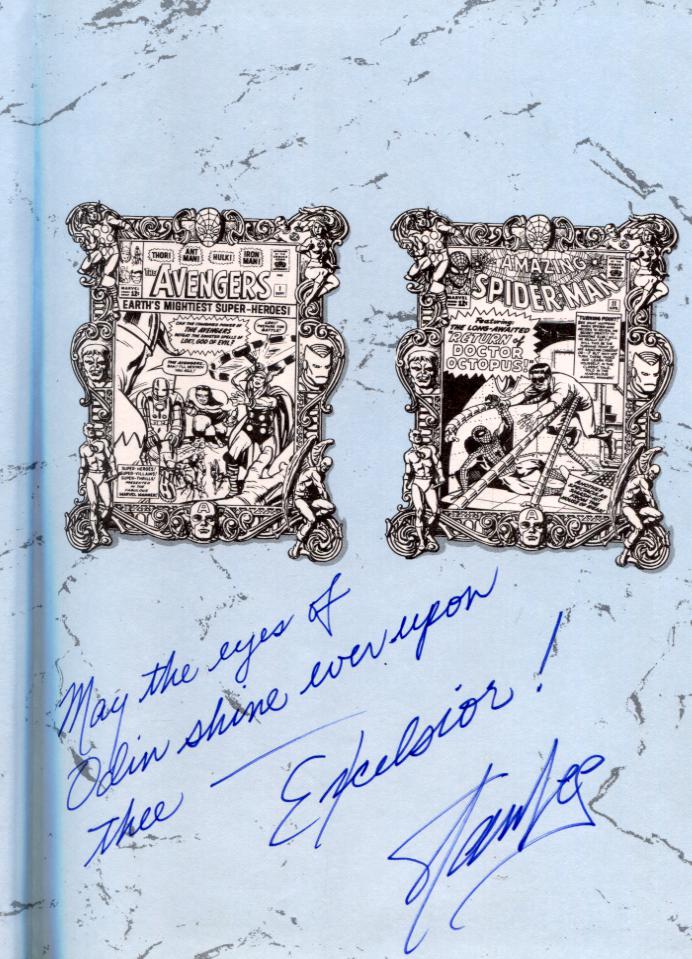 THOR!
ANT MAN!
HULK!
IRON MAN!
THE AVENGERS
EARTH'S MIGHTIEST SUPER-HEROES!
THE AVENGERS
LOKI, GOD OF EVIL!
SUPER-HEROES!
SUPER-VILLAINS!
SUPER-THRILLS!
PRESENTED
IN THE
FABULOUS
MARVEL MANNER!
AMAZING
SPIDER-MAN
Featuring
THE LONG-AWAITED
RETURN of
DOCTOR
OCTOPUS!
May the eyes of
Odin shine ever upon
thee — Excelsior!
Stan Lee